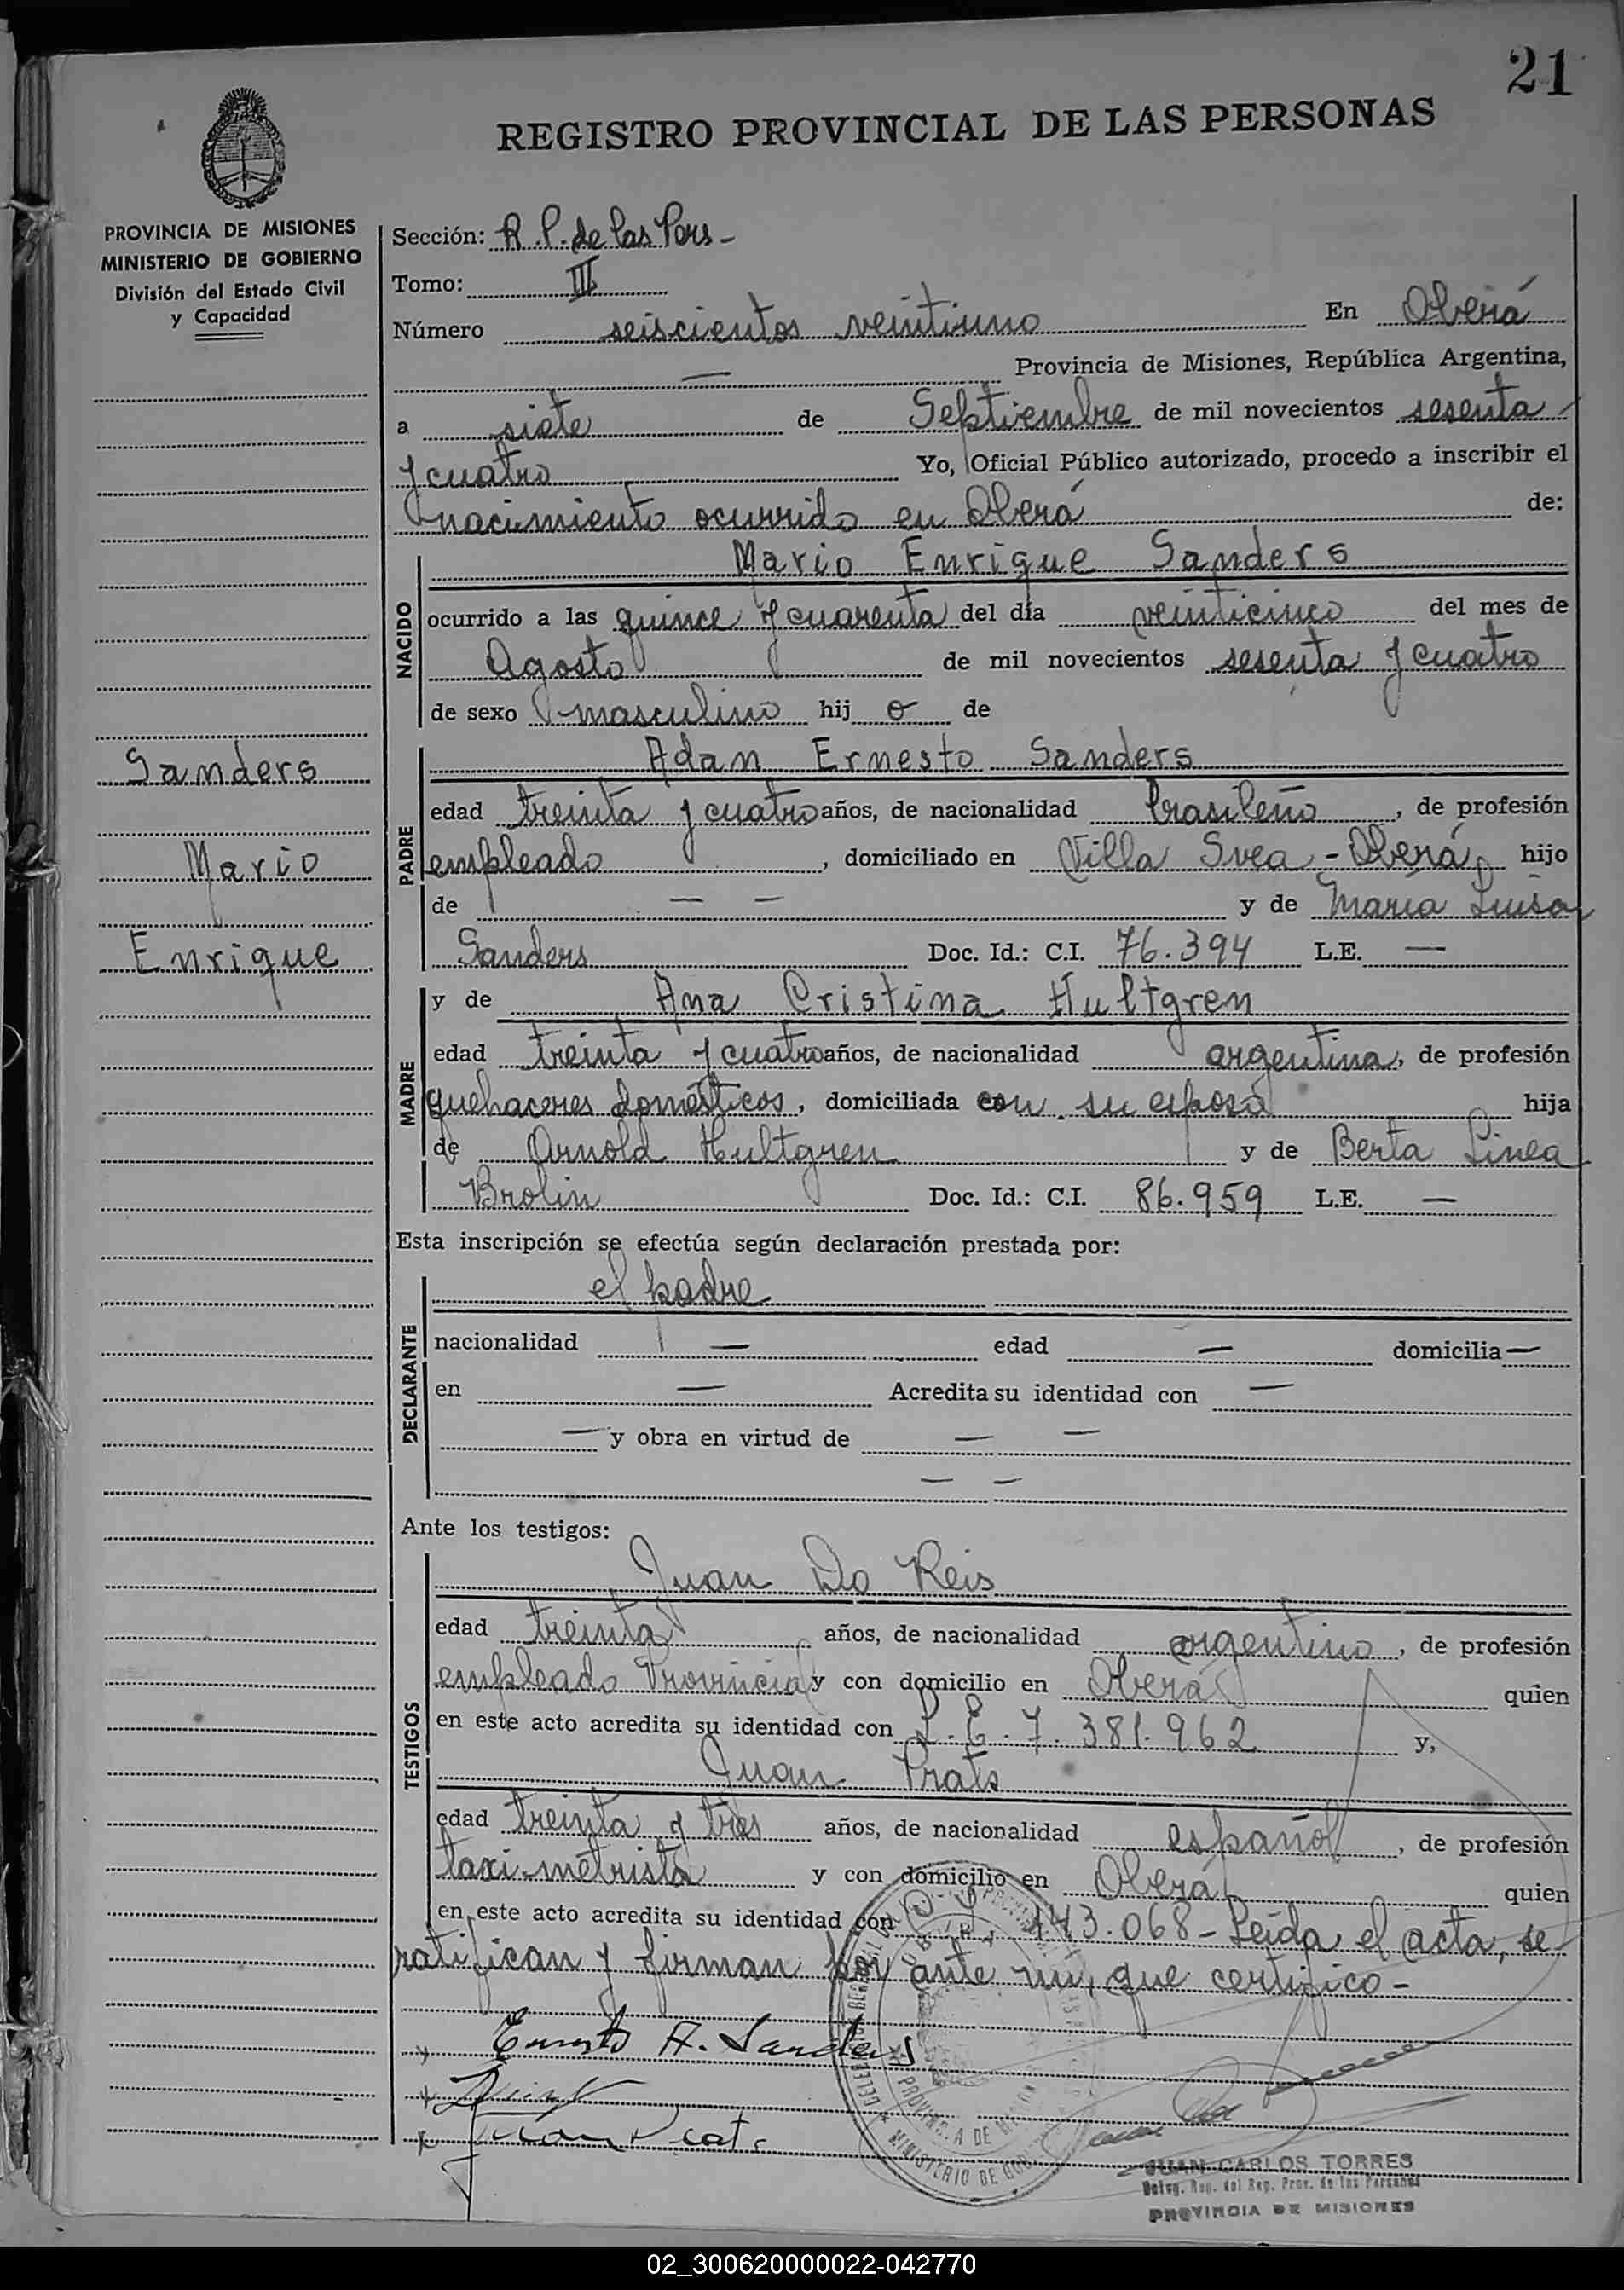 21
REGISTRO PROVINCIAL DE LAS PERSONAS
PROVINCIA DE MISIONES
MINISTERIO DE GOBIERNO
División del Estado Civil
y Capacidad
Sección: R. P. de las Pers -
Tomo: III
Número seiscientos veintiuno En Oberá
— Provincia de Misiones, República Argentina,
a siete de Septiembre de mil novecientos sesenta
y cuatro Yo, Oficial Público autorizado, procedo a inscribir el
nacimiento ocurrido en Oberá de:
NACIDO
Mario Enrique Sanders
ocurrido a las quince y cuarenta del día veinticinco del mes de
Agosto de mil novecientos sesenta y cuatro
de sexo masculino hij o de
Sanders
Mario
Enrique
PADRE
Adan Ernesto Sanders
edad treinta y cuatro años, de nacionalidad brasileño, de profesión
empleado, domiciliado en Villa Svea - Oberá, hijo
de — — y de María Luisa
Sanders Doc. Id.: C.I. 76.394 L.E. —
MADRE
y de Ana Cristina Hultgren
edad treinta y cuatro años, de nacionalidad argentina, de profesión
quehaceres domésticos, domiciliada con su esposo hija
de Arnold Hultgren y de Berta Linea
Brolin Doc. Id.: C.I. 86.959 L.E. —
Esta inscripción se efectúa según declaración prestada por:
DECLARANTE
el padre
nacionalidad — edad — domicilia —
en — Acredita su identidad con —
— y obra en virtud de — —
— —
Ante los testigos:
TESTIGOS
Juan Do Reis
edad treinta años, de nacionalidad argentino, de profesión
empleado Provincial y con domicilio en Oberá quien
en este acto acredita su identidad con L.E. 7.381.962 y,
Juan Prats
edad treinta y tres años, de nacionalidad español, de profesión
taxi-metrista y con domicilio en Oberá quien
en este acto acredita su identidad con 143.068 - Leída el acta, se
ratifican y firman por ante mí, que certifico -
Ernesto A. Sanders
Juan Prats
JUAN CARLOS TORRES
Deleg. Reg. del Reg. Prov. de las Personas
PROVINCIA DE MISIONES
02_300620000022-042770